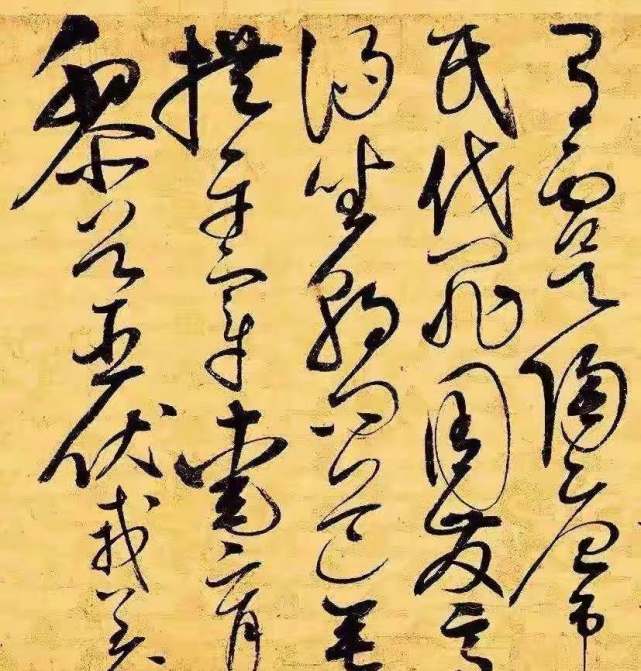 有虞陶唐弔
民伐罪周發殷
湯坐朝問道垂
拱平章愛育
黎首臣伏戎羌